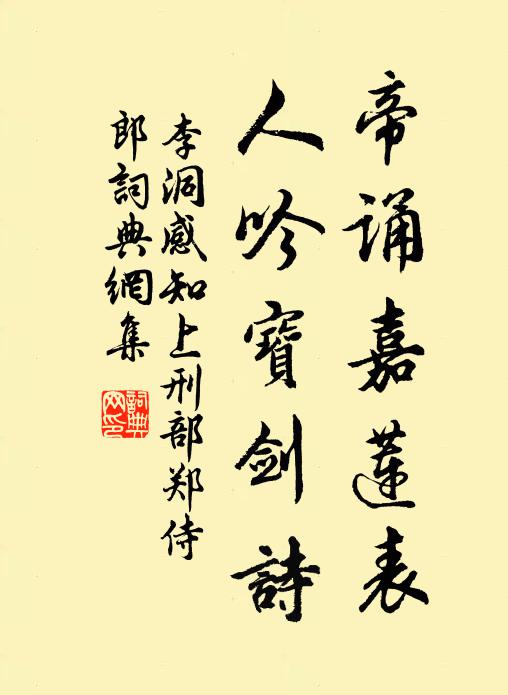 帝诵嘉莲表
人吟寳劍詩
李洞感知上刑部郑侍
郎詞典網集
詞典网印